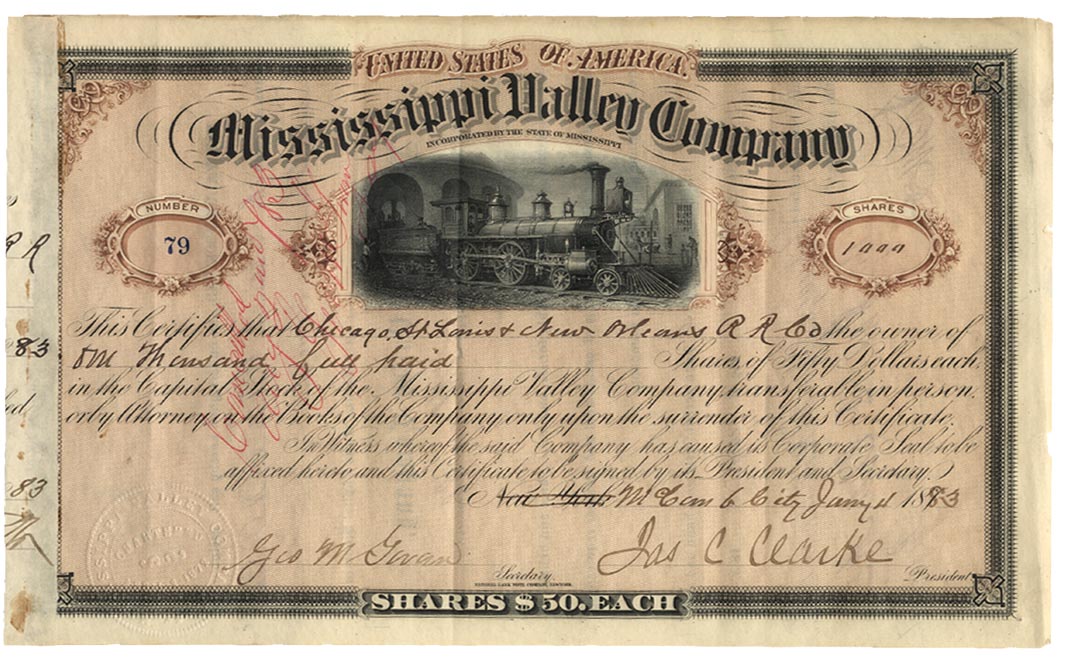 UNITED STATES OF AMERICA.
Mississippi Valley Company
INCORPORATED BY THE STATE OF MISSISSIPPI
NUMBER
79
SHARES
1000
R R
This Certifies that Chicago, St Louis & New Orleans R R Co the owner of
83
One Thousand full paid Shares of Fifty Dollars each
in the Capital Stock of the Mississippi Valley Company, transferable in person
or by Attorney on the Books of the Company only upon the surrender of this Certificate.
In Witness whereof the said Company has caused its Corporate Seal to be
affixed hereto and this Certificate to be signed by its President and Secretary.
83
New York McComb City Jany 4 1883
Geo M Govan
Jas C Clarke
Secretary.
President
NATIONAL BANK NOTE COMPANY, NEW YORK.
SHARES $50. EACH